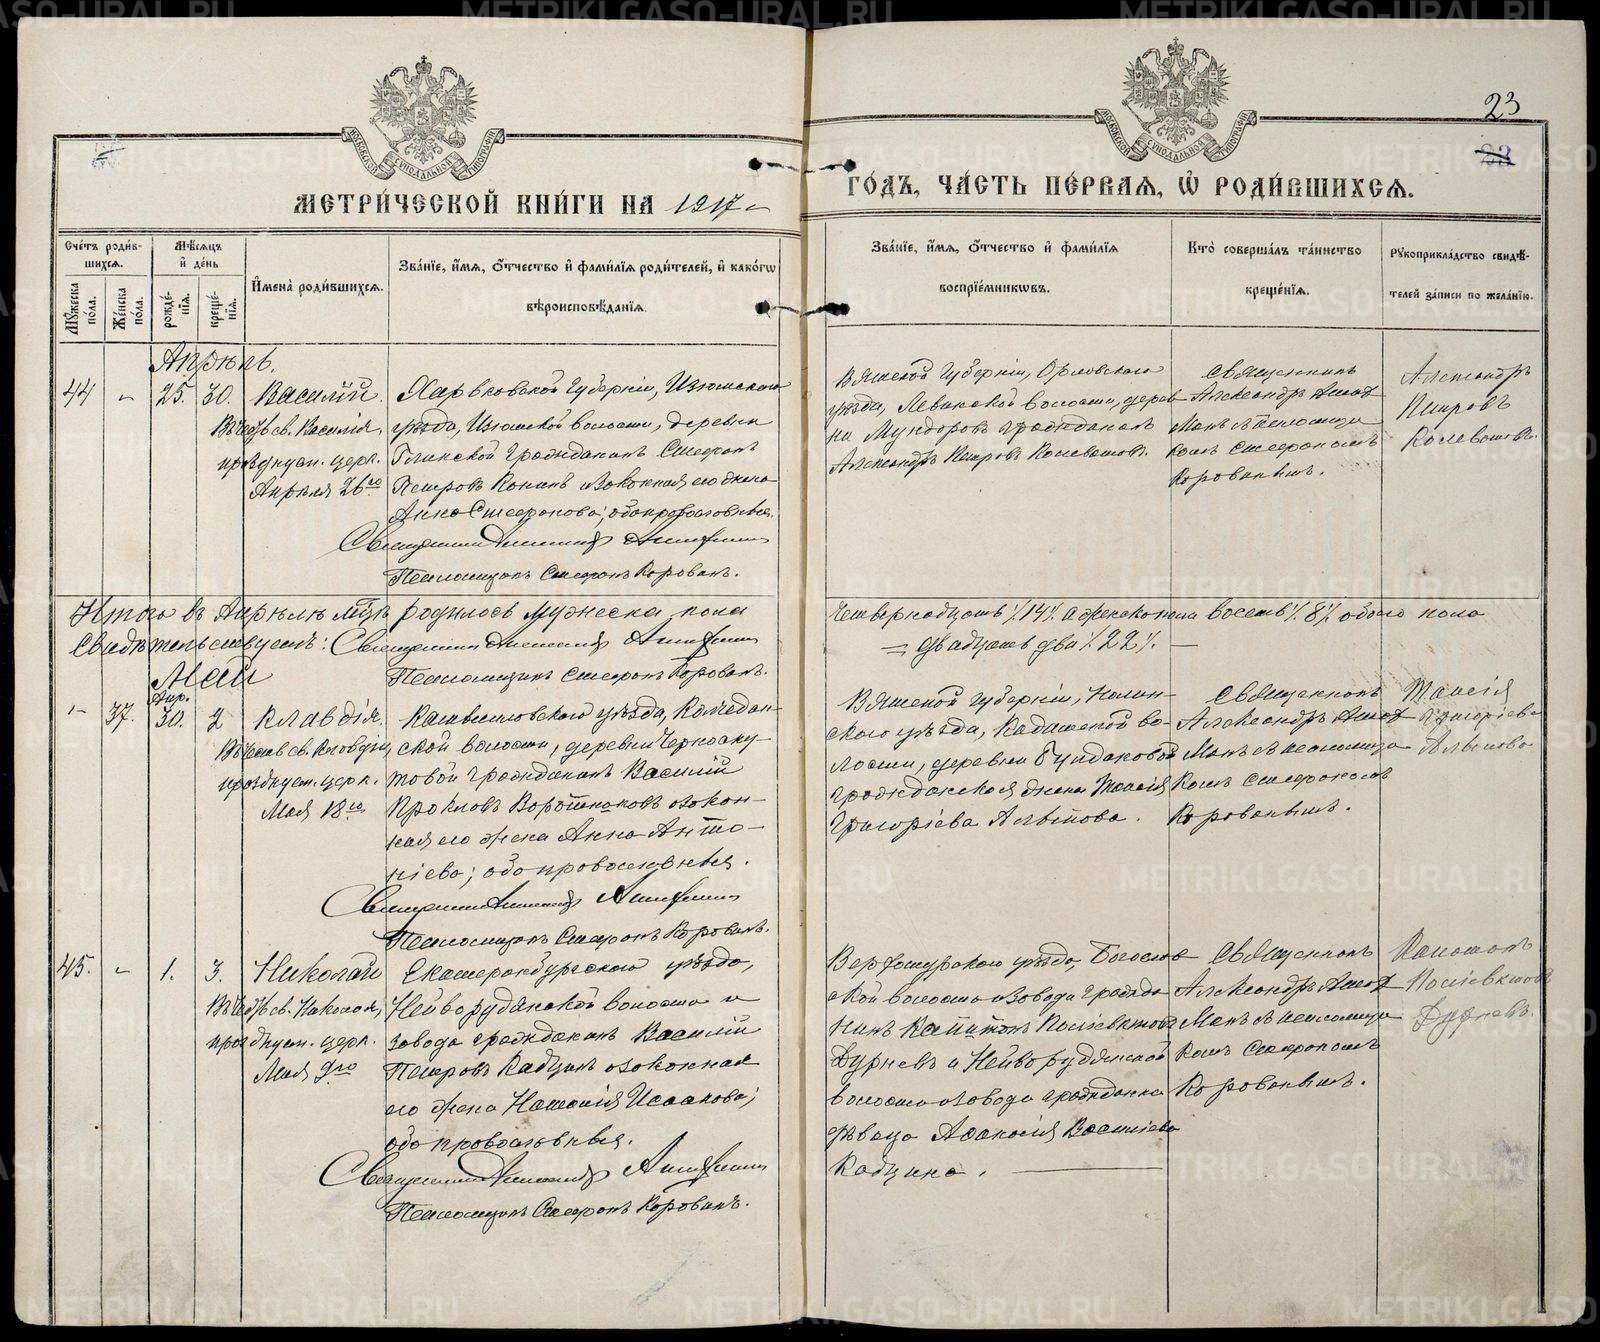 23
МОСКОВСКОЙ СѴНОДАЛЬНОЙ ТИПОГРАФІИ
МОСКОВСКОЙ СѴНОДАЛЬНОЙ ТИПОГРАФІИ
МЕТРИ́ЧЕСКОЙ КНИ́ГИ НА 1917
ГО́ДЪ, ЧА́СТЬ ПЕ́РВАЯ, Ѡ҆ РОДИ́ВШИХСЯ.
Сче́тъ роди́в-
шихся.
Мꙋ́жеска по́ла.
Же́нска по́ла.
Мѣ́сяцъ
и҆ де́нь
рожде́-
нїя.
креще́-
нїя.
И҆мена̀ роди́вшихся.
Зва́нїе, и҆́мя, ѻ҆́тчество и҆ фами́лїя роди́телей, и҆ како́гѡ
вѣроисповѣ́данїя.
Зва́нїе, и҆́мя, ѻ҆́тчество и҆ фами́лїя
воспрїе́мникѡвъ.
Кто̀ соверша́лъ та́инство
креще́нїя.
Рꙋкоприкла́дство свидѣ́-
телей за́писи по жела́нїю.
Апрѣль.
44 - 25. 30. Василій.
Въ честь св. Василія,
празднуем. церк.
Апрѣля 26го
Харьковской губерніи, Изюмскаго
уѣзда, Изюмской волости, деревни
Глинской гражданинъ Стефанъ
Петровъ и законная его жена
Анна Стефанова; оба православные.
Священникъ
Псаломщикъ Стефанъ Корованъ.
Вятской губерніи, Орловскаго
уѣзда, Левинской волости, дерев-
ни гражданинъ
Александръ Петровъ Колеватовъ.
Священникъ
Александръ
съ псаломщи
комъ Стефаномъ
Корованымъ.
Александръ
Петровъ
Колеватовъ.
Итого въ Апрѣлѣ м-цѣ родилось мужеска пола
четырнадцать /14/ а женска пола восемь /8/ обоего пола
Свидѣтельствуемъ: Священникъ
= двадцать два /22/. —
Псаломщикъ Стефанъ Корованъ.
Май
- 37. Апр. 30. 2 Клавдія.
Въ честь св. Клавдіи,
празднуем. церк.
Мая 18го
Камышловскаго уѣзда,
ской волости, деревни Черноску-
товой гражданинъ Василій
Воротниковъ и закон-
ная его жена Анна Анто-
ніева; оба православные.
Священникъ
Псаломщикъ Стефанъ Корованъ.
Вятской губерніи, Нолин-
скаго уѣзда, во-
лости, деревни
гражданская жена Таисія
Григоріева
Священникъ
Александръ
съ псаломщи
комъ Стефаномъ
Корованымъ.
Таисія
Григоріева
45. - 1. 3. Николай
Въ честь св. Николая,
празднуем. церк.
Мая 9го
Екатеринбургскаго уѣзда,
Нейворудянской волости и
завода гражданинъ Василій
Петровъ Кадцынъ и законная
его жена Наталія Исаакова;
оба православные.
Священникъ
Псаломщикъ Стефанъ Корованъ.
Верхотурскаго уѣзда, Богослов-
ской волости и завода гражда
нинъ Капитонъ
Дурневъ и Нейворудянской
волости и завода гражданка
дѣвица Аѳанасія Васильева
Кадцына.
Священникъ
Александръ
съ псаломщи
комъ Стефаномъ
Корованымъ.
Капитонъ
Дурневъ.
METRIKI.GASO-URAL.RU